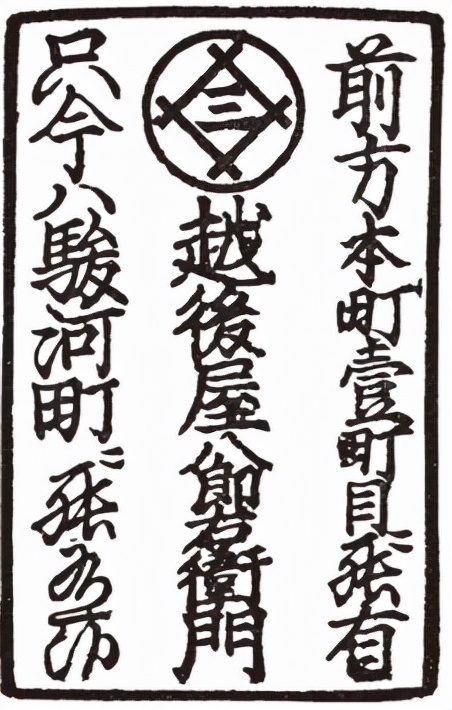 前方本町壹町目ニ罷有
三
越後屋八郎右衛門
只今ハ駿河町ニ罷